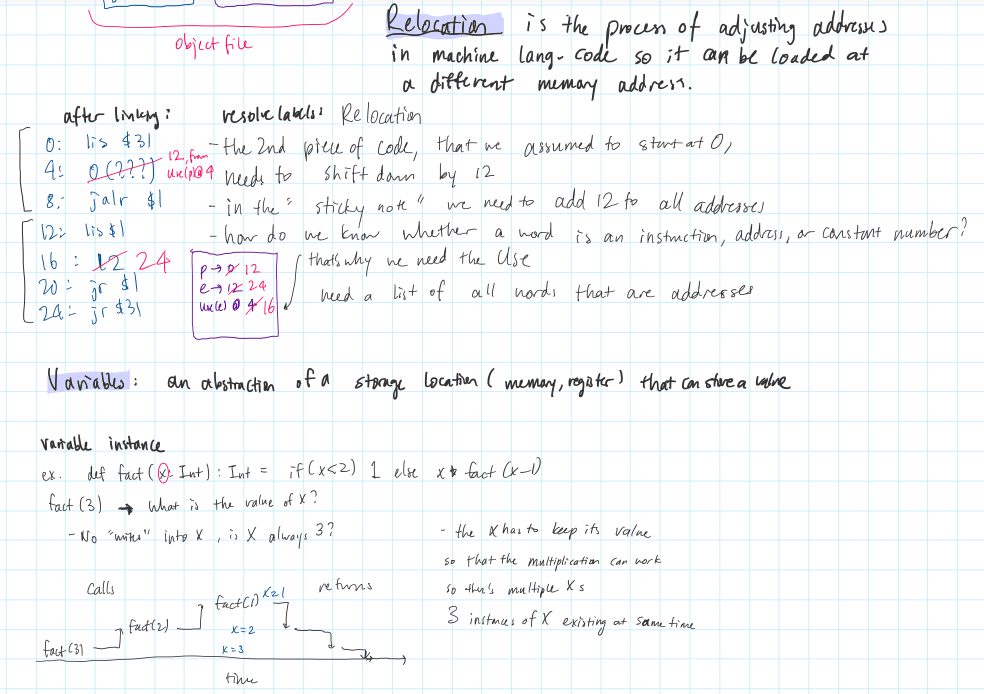 object file
Relocation is the process of adjusting addresses
in machine lang. code so it can be loaded at
a different memory address.
after linking:
0: lis $31
4: 0(???) 12, from use(p)@4
8: jalr $1
12: lis $1
16: 12 24
20: jr $1
24: jr $31
resolve labels: Relocation
- the 2nd piece of code, that we assumed to start at 0,
needs to shift down by 12
- in the "sticky note" we need to add 12 to all addresses
- how do we know whether a word is an instruction, address, or constant number?
p → 0 12
e → 12 24
use(e) @ 4 16
that's why we need the Use
need a list of all words that are addresses
Variables: an abstraction of a storage location (memory, register) that can store a value
variable instance
ex. def fact(x: Int): Int = if(x<2) 1 else x * fact(x-1)
fact(3) → What is the value of x?
- No "writes" into x, is x always 3?
- the x has to keep its value
so that the multiplication can work
so there's multiple xs
3 instances of x existing at same time
calls
returns
fact(1) x=1
fact(2)
x=2
fact(3)
x=3
time